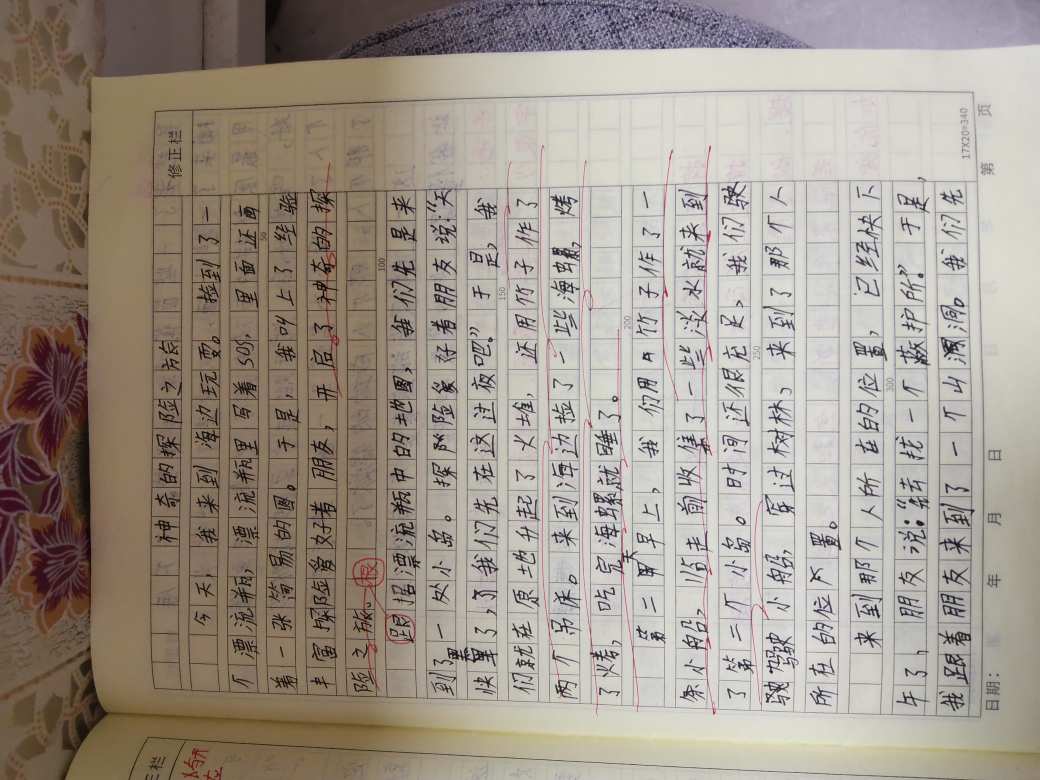 修正栏
神奇的探险之旅
今天，我来到海边玩耍。捡到了一
个漂流瓶，漂流瓶里写着SOS，里面还画
着一张简易的图。于是，我叫上了经验
丰富探险爱好者朋友，开启了神奇的探
险之旅。
根
跟据漂流瓶中的地图，我们先是来
到了一处小岛。探险爱好者朋友说：“天
快黑了，了我们先在这过夜吧。”于是，我
们就在原地升起了火堆，还用竹子作了
两个吊床。来到海边捡了一些海螺，烤
了烤，吃完海螺就睡了。
第二天早上，我们用竹子作了一
条小船，临走前收集了一些淡水就来到
了第二个小岛。时间还很充足，我们驶
驾驶小船，穿过树林，来到了那个人
所在的位置。
来到那个人所在的位置，已经快下
午了，朋友说：“先找一个蔽护所。”于是，
我跟着朋友来到了一个山洞。我们先
50
100
150
200
250
300
17X20=340
日期： 年 月 日
第 页